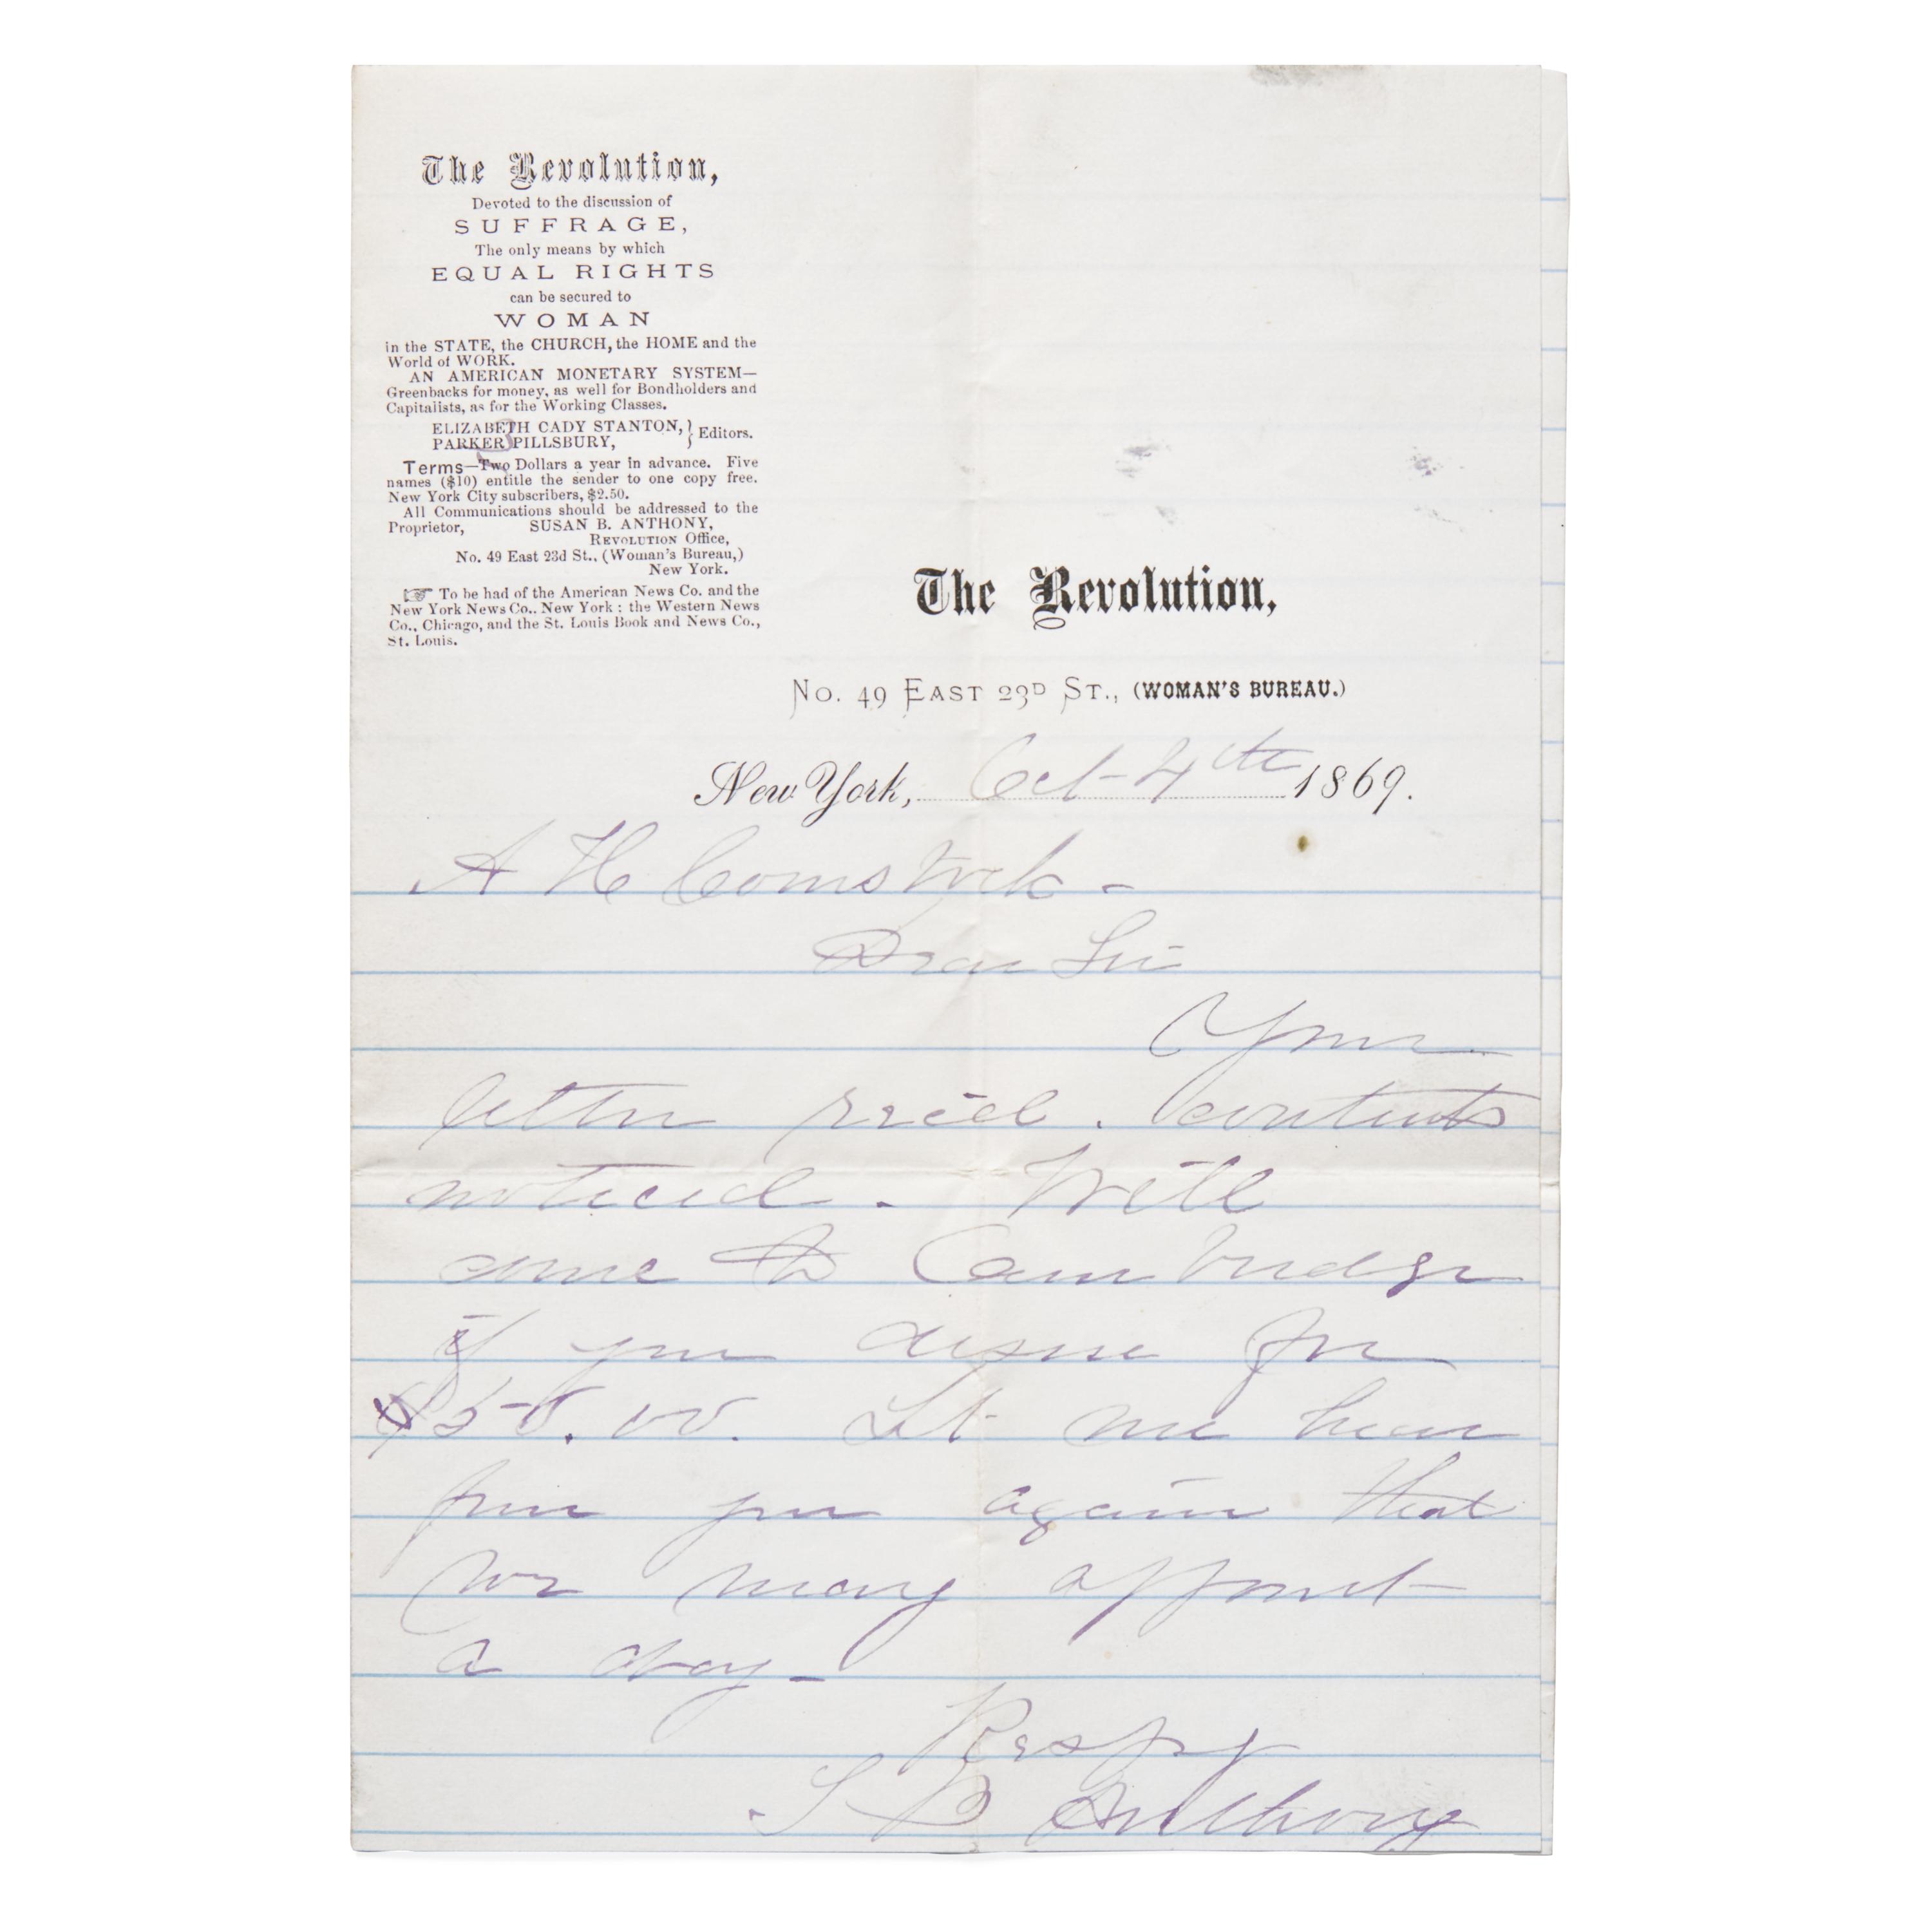 The Revolution,
Devoted to the discussion of
SUFFRAGE,
The only means by which
EQUAL RIGHTS
can be secured to
WOMAN
in the STATE, the CHURCH, the HOME and the
World of WORK.
AN AMERICAN MONETARY SYSTEM—
Greenbacks for money, as well for Bondholders and
Capitalists, as for the Working Classes.
ELIZABETH CADY STANTON, } Editors.
PARKER PILLSBURY,
Terms—Two Dollars a year in advance. Five
names ($10) entitle the sender to one copy free.
New York City subscribers, $2.50.
All Communications should be addressed to the
Proprietor, SUSAN B. ANTHONY,
REVOLUTION Office,
No. 49 East 23d St., (Woman's Bureau,)
New York.
☞ To be had of the American News Co. and the
New York News Co., New York : the Western News
Co., Chicago, and the St. Louis Book and News Co.,
St. Louis.
The Revolution,
No. 49 East 23D St., (WOMAN'S BUREAU.)
New York, Oct- 4th 1869.
A H Comstock -
Dear Sir
Your
letter rec'd. contents
noticed - Will
come to Cambridge
if you desire for
$50.00. Let me hear
from you again that
we may appoint
a day -
Respy
S B Anthony